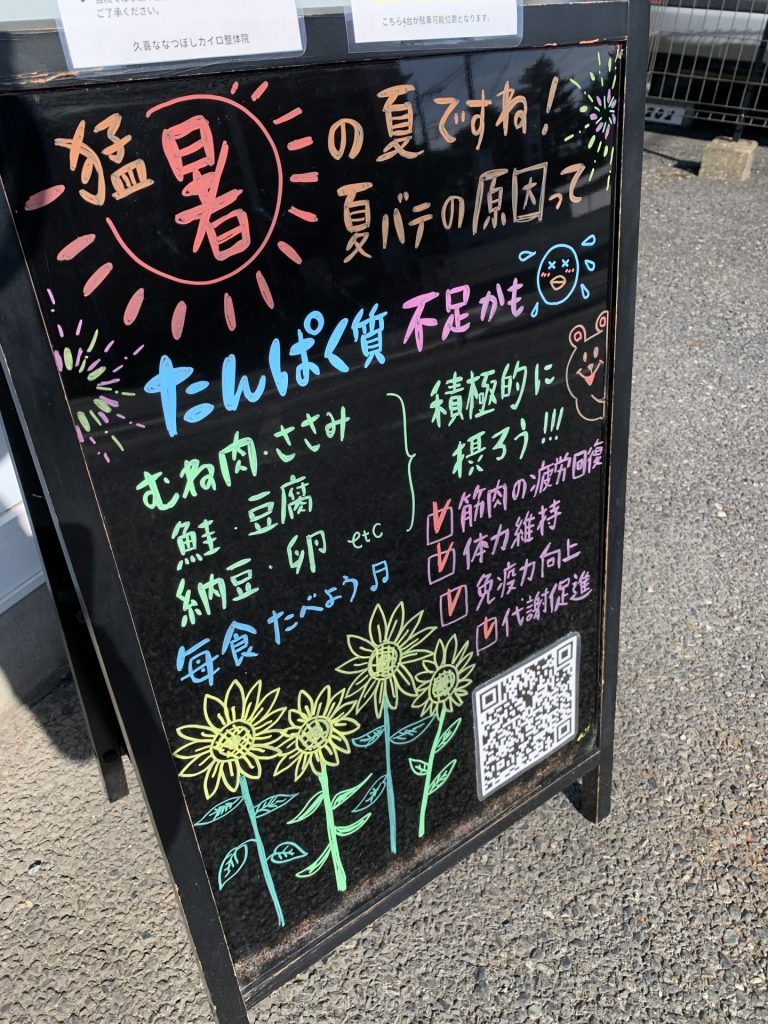 ご了承ください。
久喜ななつぼしカイロ整体院
こちら4台が駐車可能位置となります。
猛暑の夏ですね!
夏バテの原因って
たんぱく質 不足かも
むね肉・ささみ
鮭・豆腐
納豆・卵 etc
毎食 たべよう♬
積極的に
摂ろう!!!
筋肉の疲労回復
体力維持
免疫力向上
代謝促進